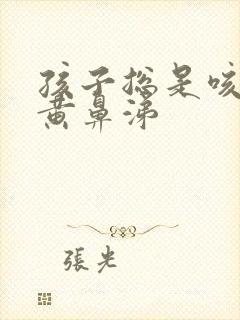 孩子总是咳
黄鼻涕
張光